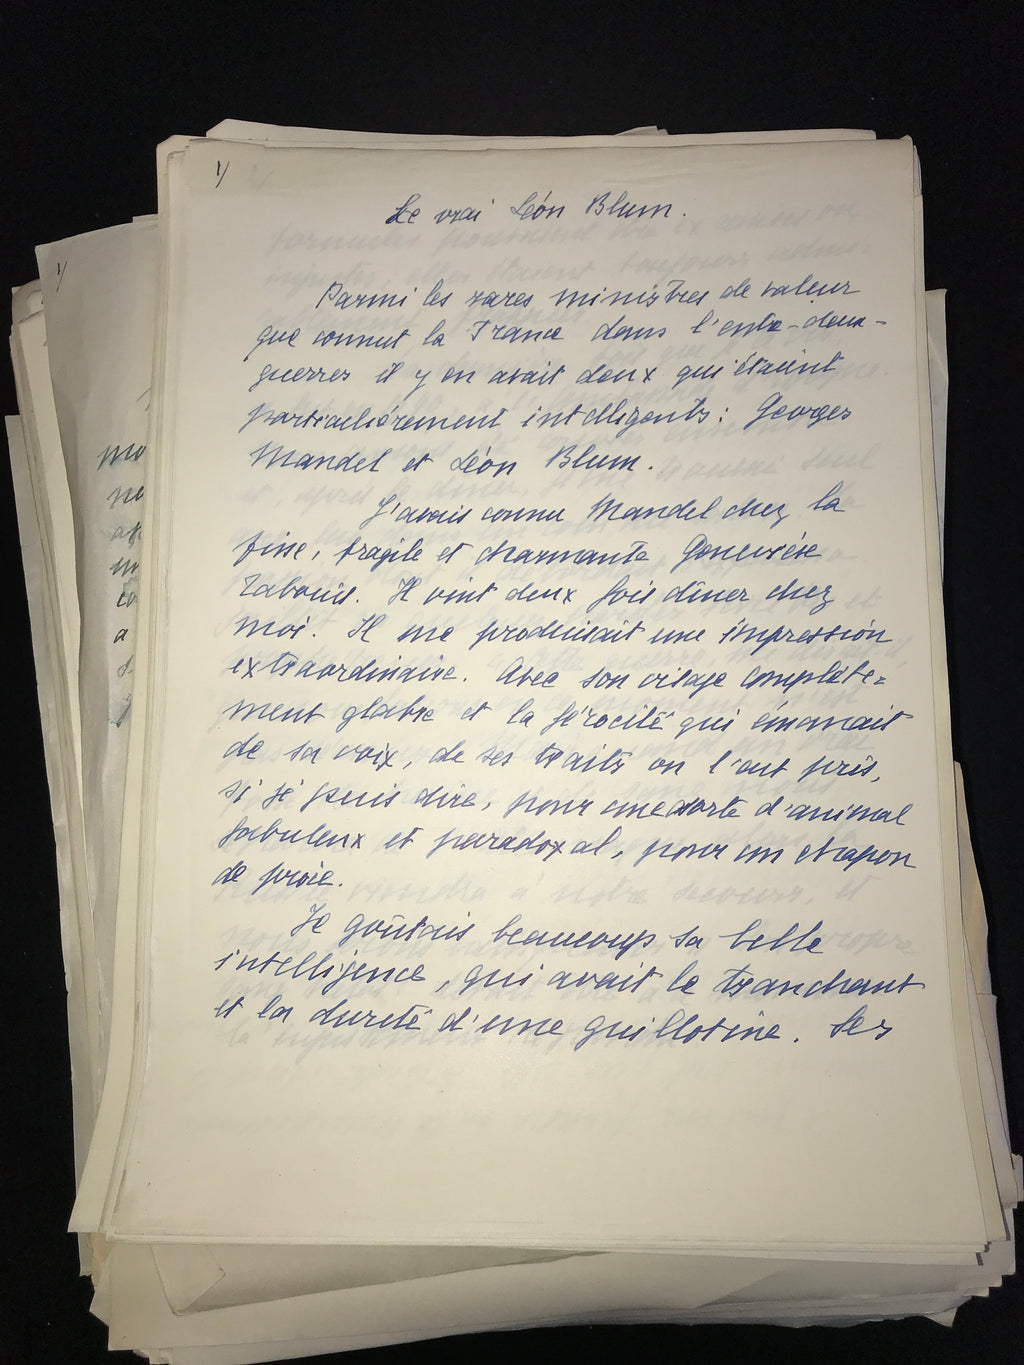 1/
Le vrai Léon Blum.
Parmi les rares ministres de valeur
que connut la France dans l'entre-deux-
guerres il y en avait deux qui étaient
particulièrement intelligents: Georges
Mandel et Léon Blum.
J'avais connu Mandel chez la
fine, fragile et charmante Geneviève
Tabouis. Il vint deux fois dîner chez
moi. Il me produisait une impression
extraordinaire. Avec son visage complète=
ment glabre et la férocité qui émanait
de sa voix, de ses traits on l'eut pris,
si je puis dire, pour une sorte d'animal
fabuleux et paradoxal, pour un chapon
de proie.
Je goûtais beaucoup sa belle
intelligence, qui avait le tranchant
et la dureté d'une guillotine. Ses
1/